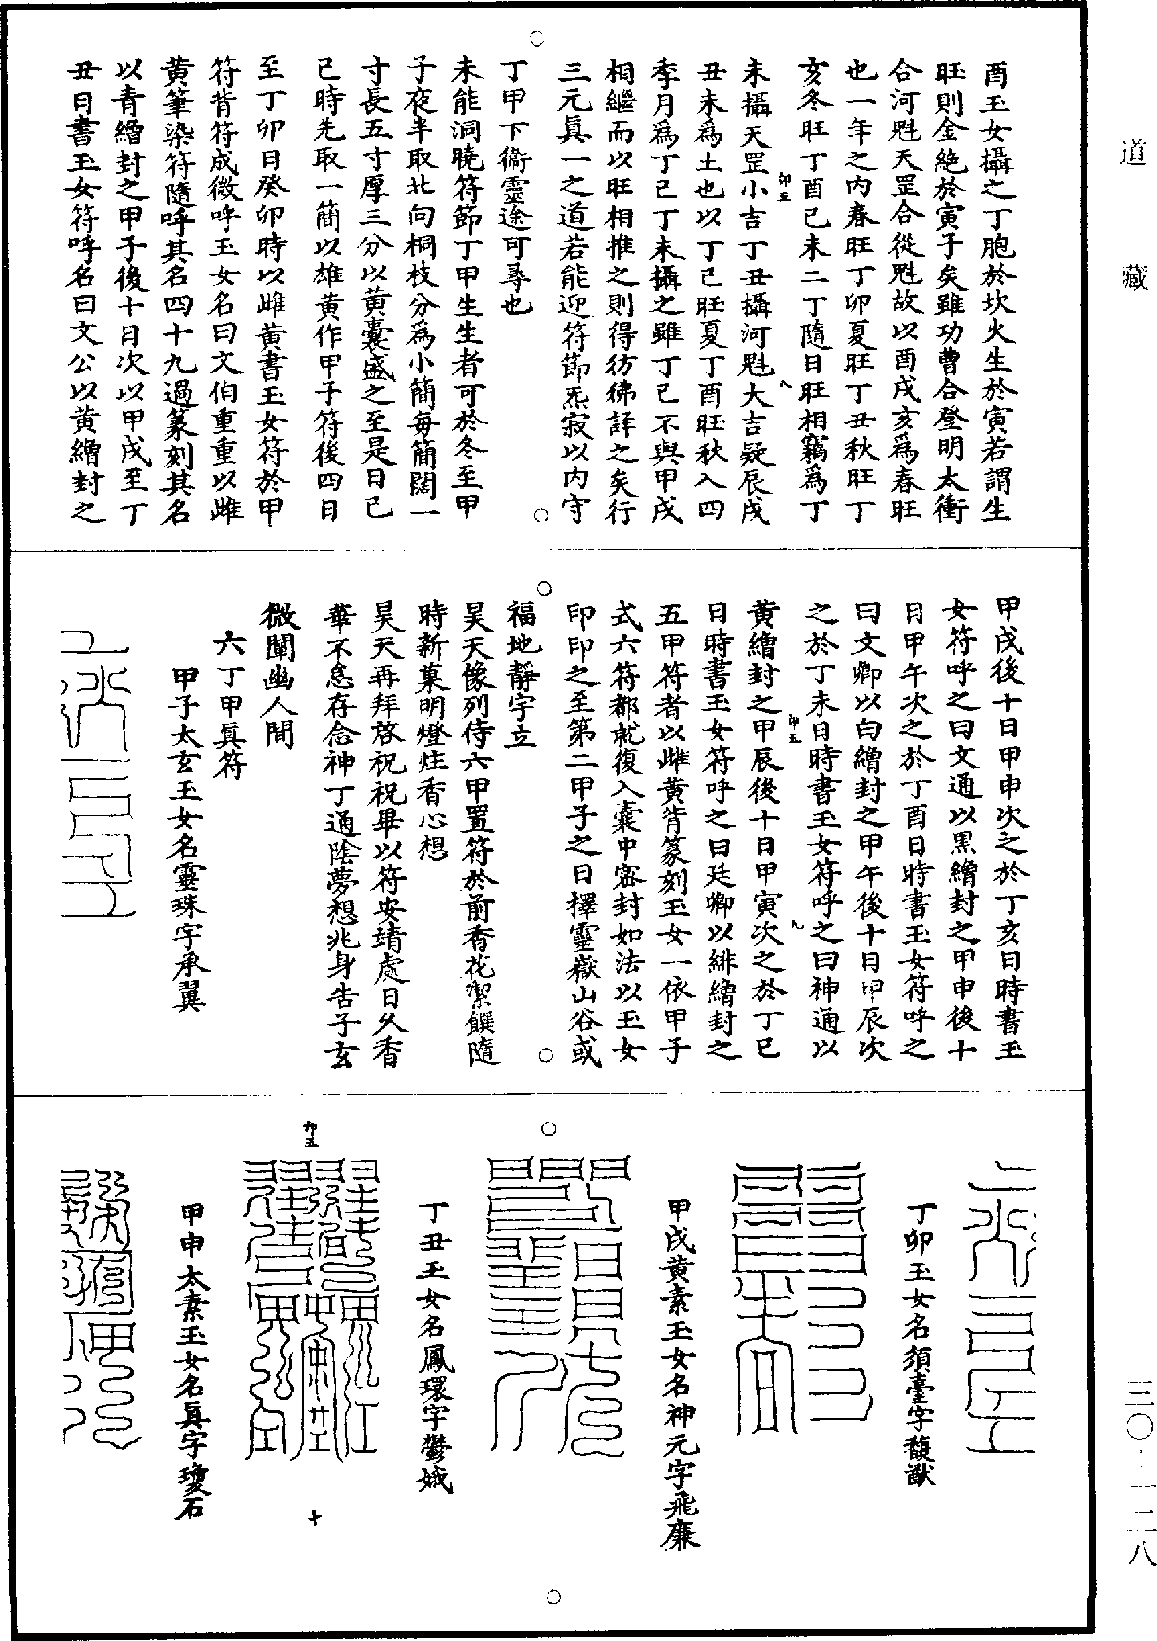 道藏
酉玉女攝之丁胞於坎火生於寅若謂生
旺則金絶於寅子矣雖功曹合登明太衝
合河魁天罡合從魁故以酉戌亥爲春旺
也一年之内春旺丁卯夏旺丁丑秋旺丁
亥冬旺丁酉己未二丁隨日旺相竊爲丁
未攝天罡小吉丁丑攝河魁大吉疑辰戌
丑未爲土也以丁巳旺夏丁酉旺秋入四
季月爲丁巳丁未攝之雖丁巳不與甲戌
相繼而以旺相推之則得彷彿詳之矣行
三元真一之道若能迎符節炁寂以内守
丁甲下衞靈途可尋也
未能洞曉符節丁甲生生者可於冬至甲
子夜半取北向桐枝分爲小簡每簡闊一
寸長五寸厚三分以黄囊盛之至是日巳
巳時先取一簡以雄黄作甲子符後四日
至丁卯日癸卯時以雌黄書玉女符於甲
符背符成微呼玉女名曰文伯重重以雌
黄筆染符隨呼其名四十九過篆刻其名
以青繒封之甲子後十日次以甲戌至丁
丑日書玉女符呼名曰文公以黄繒封之
甲戌後十日甲申次之於丁亥日時書玉
女符呼之曰文通以黑繒封之甲申後十
日甲午次之於丁酉日時書玉女符呼之
曰文卿以白繒封之甲午後十日甲辰次
之於丁未日時書玉女符呼之曰神通以
黄繒封之甲辰後十日甲寅次之於丁巳
日時書玉女符呼之曰廷卿以緋繒封之
五甲符者以雌黄背篆刻玉女一依甲子
式六符都就復入囊中密封如法以玉女
印印之至第二甲子之日擇靈嶽山谷或
福地靜宇立
昊天像列侍六甲置符於前香花潔饌隨
時新菓明燈炷香心想
昊天再拜啓祝祝畢以符安靖處日久香
華不怠存念神丁通陰夢想兆身告子玄
微闡幽人間
六丁甲真符
甲子太玄玉女名靈珠字承翼
丁卯玉女名須臺字馥猷
甲戌黄素玉女名神元字飛廉
丁丑玉女名鳳環字鬱娥
甲申太素玉女名真字瓊石
三〇·一二八